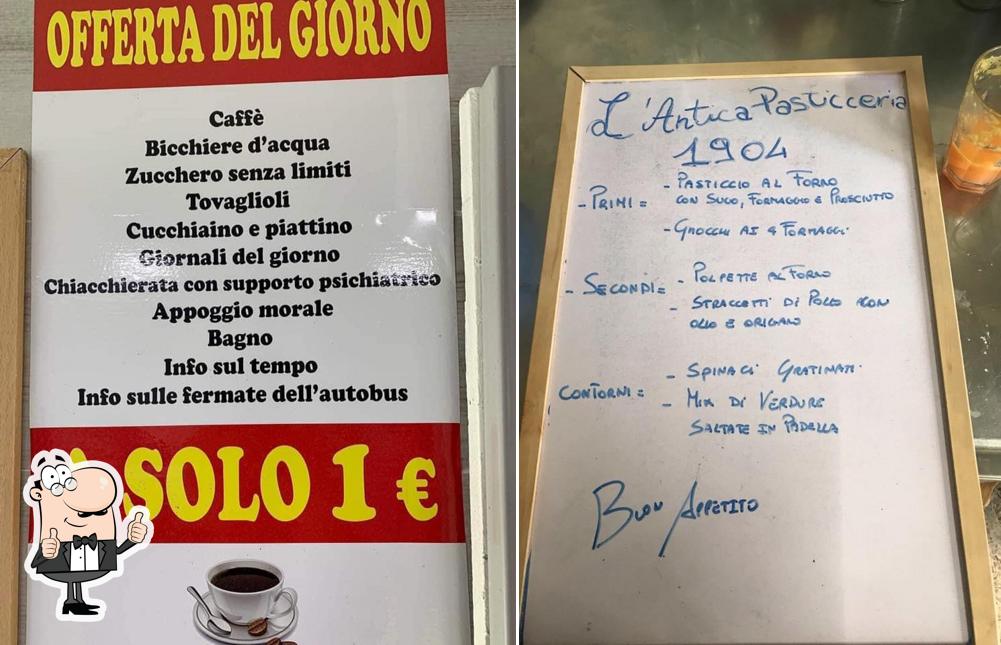 OFFERTA DEL GIORNO
Caffè
Bicchiere d'acqua
Zucchero senza limiti
Tovaglioli
Cucchiaino e piattino
Giornali del giorno
Chiacchierata con supporto psichiatrico
Appoggio morale
Bagno
Info sul tempo
Info sulle fermate dell'autobus
A SOLO 1 €
L'Antica Pasticceria
1904
- PRIMI = - PASTICCIO AL FORNO
CON SUGO, FORMAGGIO E PROSCIUTTO
- GNOCCHI AI 4 FORMAGGI
- SECONDI = - POLPETTE AL FORNO
- STRACCETTI DI POLLO CON
OLIO E ORIGANO
CONTORNI = - SPINACI GRATINATI
- MIX DI VERDURE
SALTATE IN PADELLA
BUON APPETITO